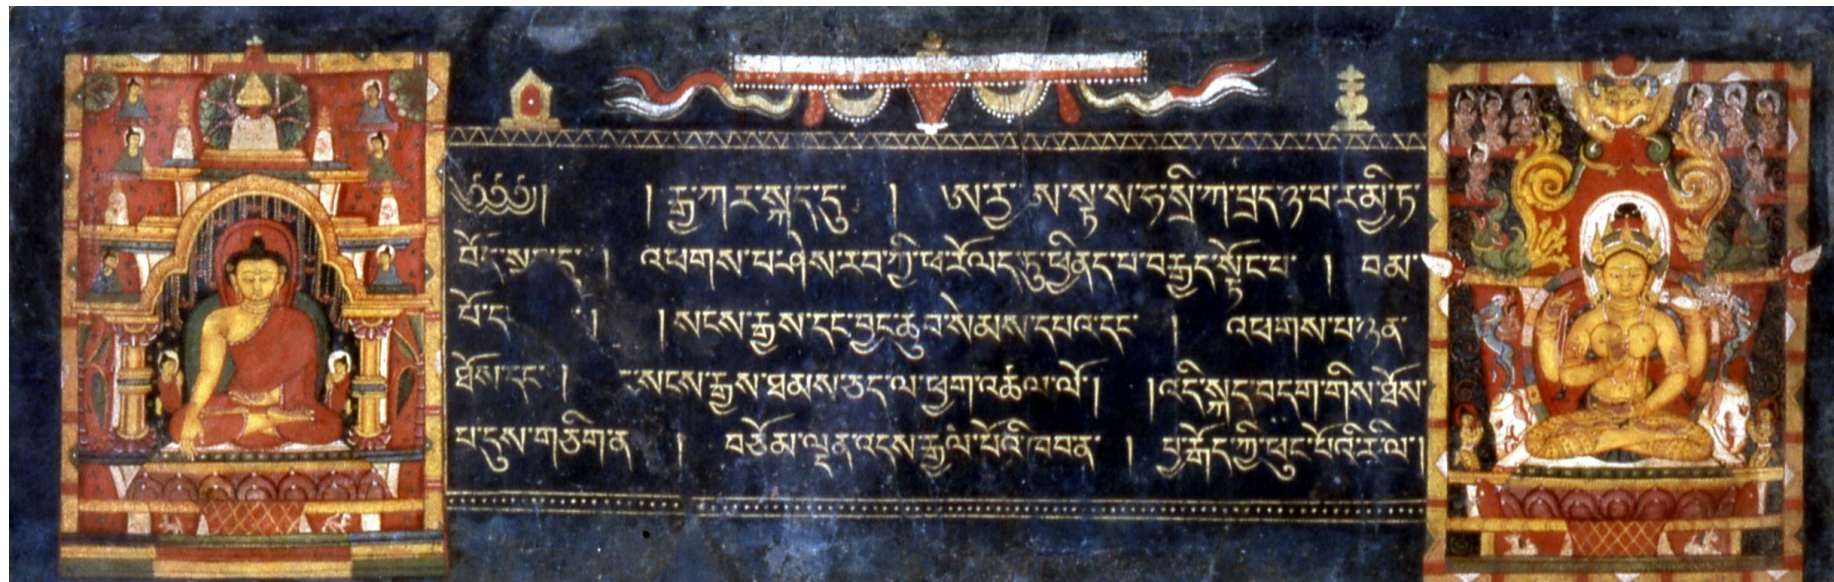 ༄༅༅། །རྒྱ་ཀར་སྐད་དུ་ །ཨརྱ་ཨ་སྟ་ས་ཧ་སྲི་ཀ་པྲད་ཉ་པ་ར་མྱི་ཏ་
བོད་སྐད་དུ་ །འཕགས་པ་ཤེས་རབ་ཀྱི་ཕ་རོལ་ད་ཏུ་ཕྱིནད་པ་བརྒྱད་སྟོང་པ་ །བམ་
པོ་ད །སངས་རྒྱས་དང་བྱང་ཆུབ་སེམས་དཔའ་དང་ །འཕགས་པ་ཉན་
ཐོས་དང་ །སངས་རྒྱས་ཐམས་ཅད་ལ་ཕྱག་འཚལ་ལོ། །འདི་སྐད་བདག་གིས་ཐོས་
པ་དུས་གཅིག་ན །བཅོམ་ལྡན་འདས་རྒྱལ་པོའི་ཁབན་ །བྱ་རྒོད་ཀྱི་ཕུང་པོའི་རི་ལ།